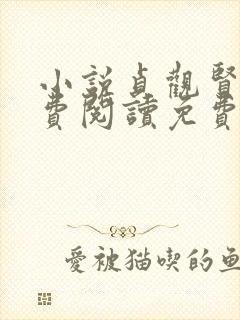 小說貞觀賢
費閱讀免費
愛被猫喫的魚